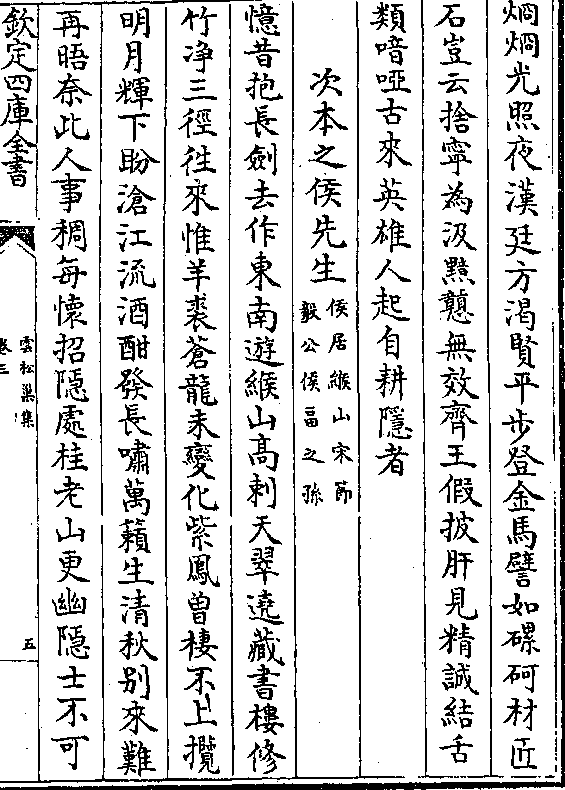 烱烱光照夜漢廷方渴賢平歩登金馬譬如磥砢材匠
石豈云捨寧為汲黯戇無效齊王假披肝見精誠結舌
類喑啞古來英雄人起自耕隱者
次本之侯先生侯居緱山宋節
毅公侯畐之孫
憶昔抱長劍去作東南遊緱山高刺天翠遶藏書樓修
竹净三徑往來惟羊裘蒼龍未變化紫鳳曽棲不上攬
明月輝下盼滄江流酒酣發長嘯萬籟生清秋别來難
再晤奈此人事稠每懷招隱處桂老山更幽隱士不可
欽定四庫全書
雲松巢集
卷三
五